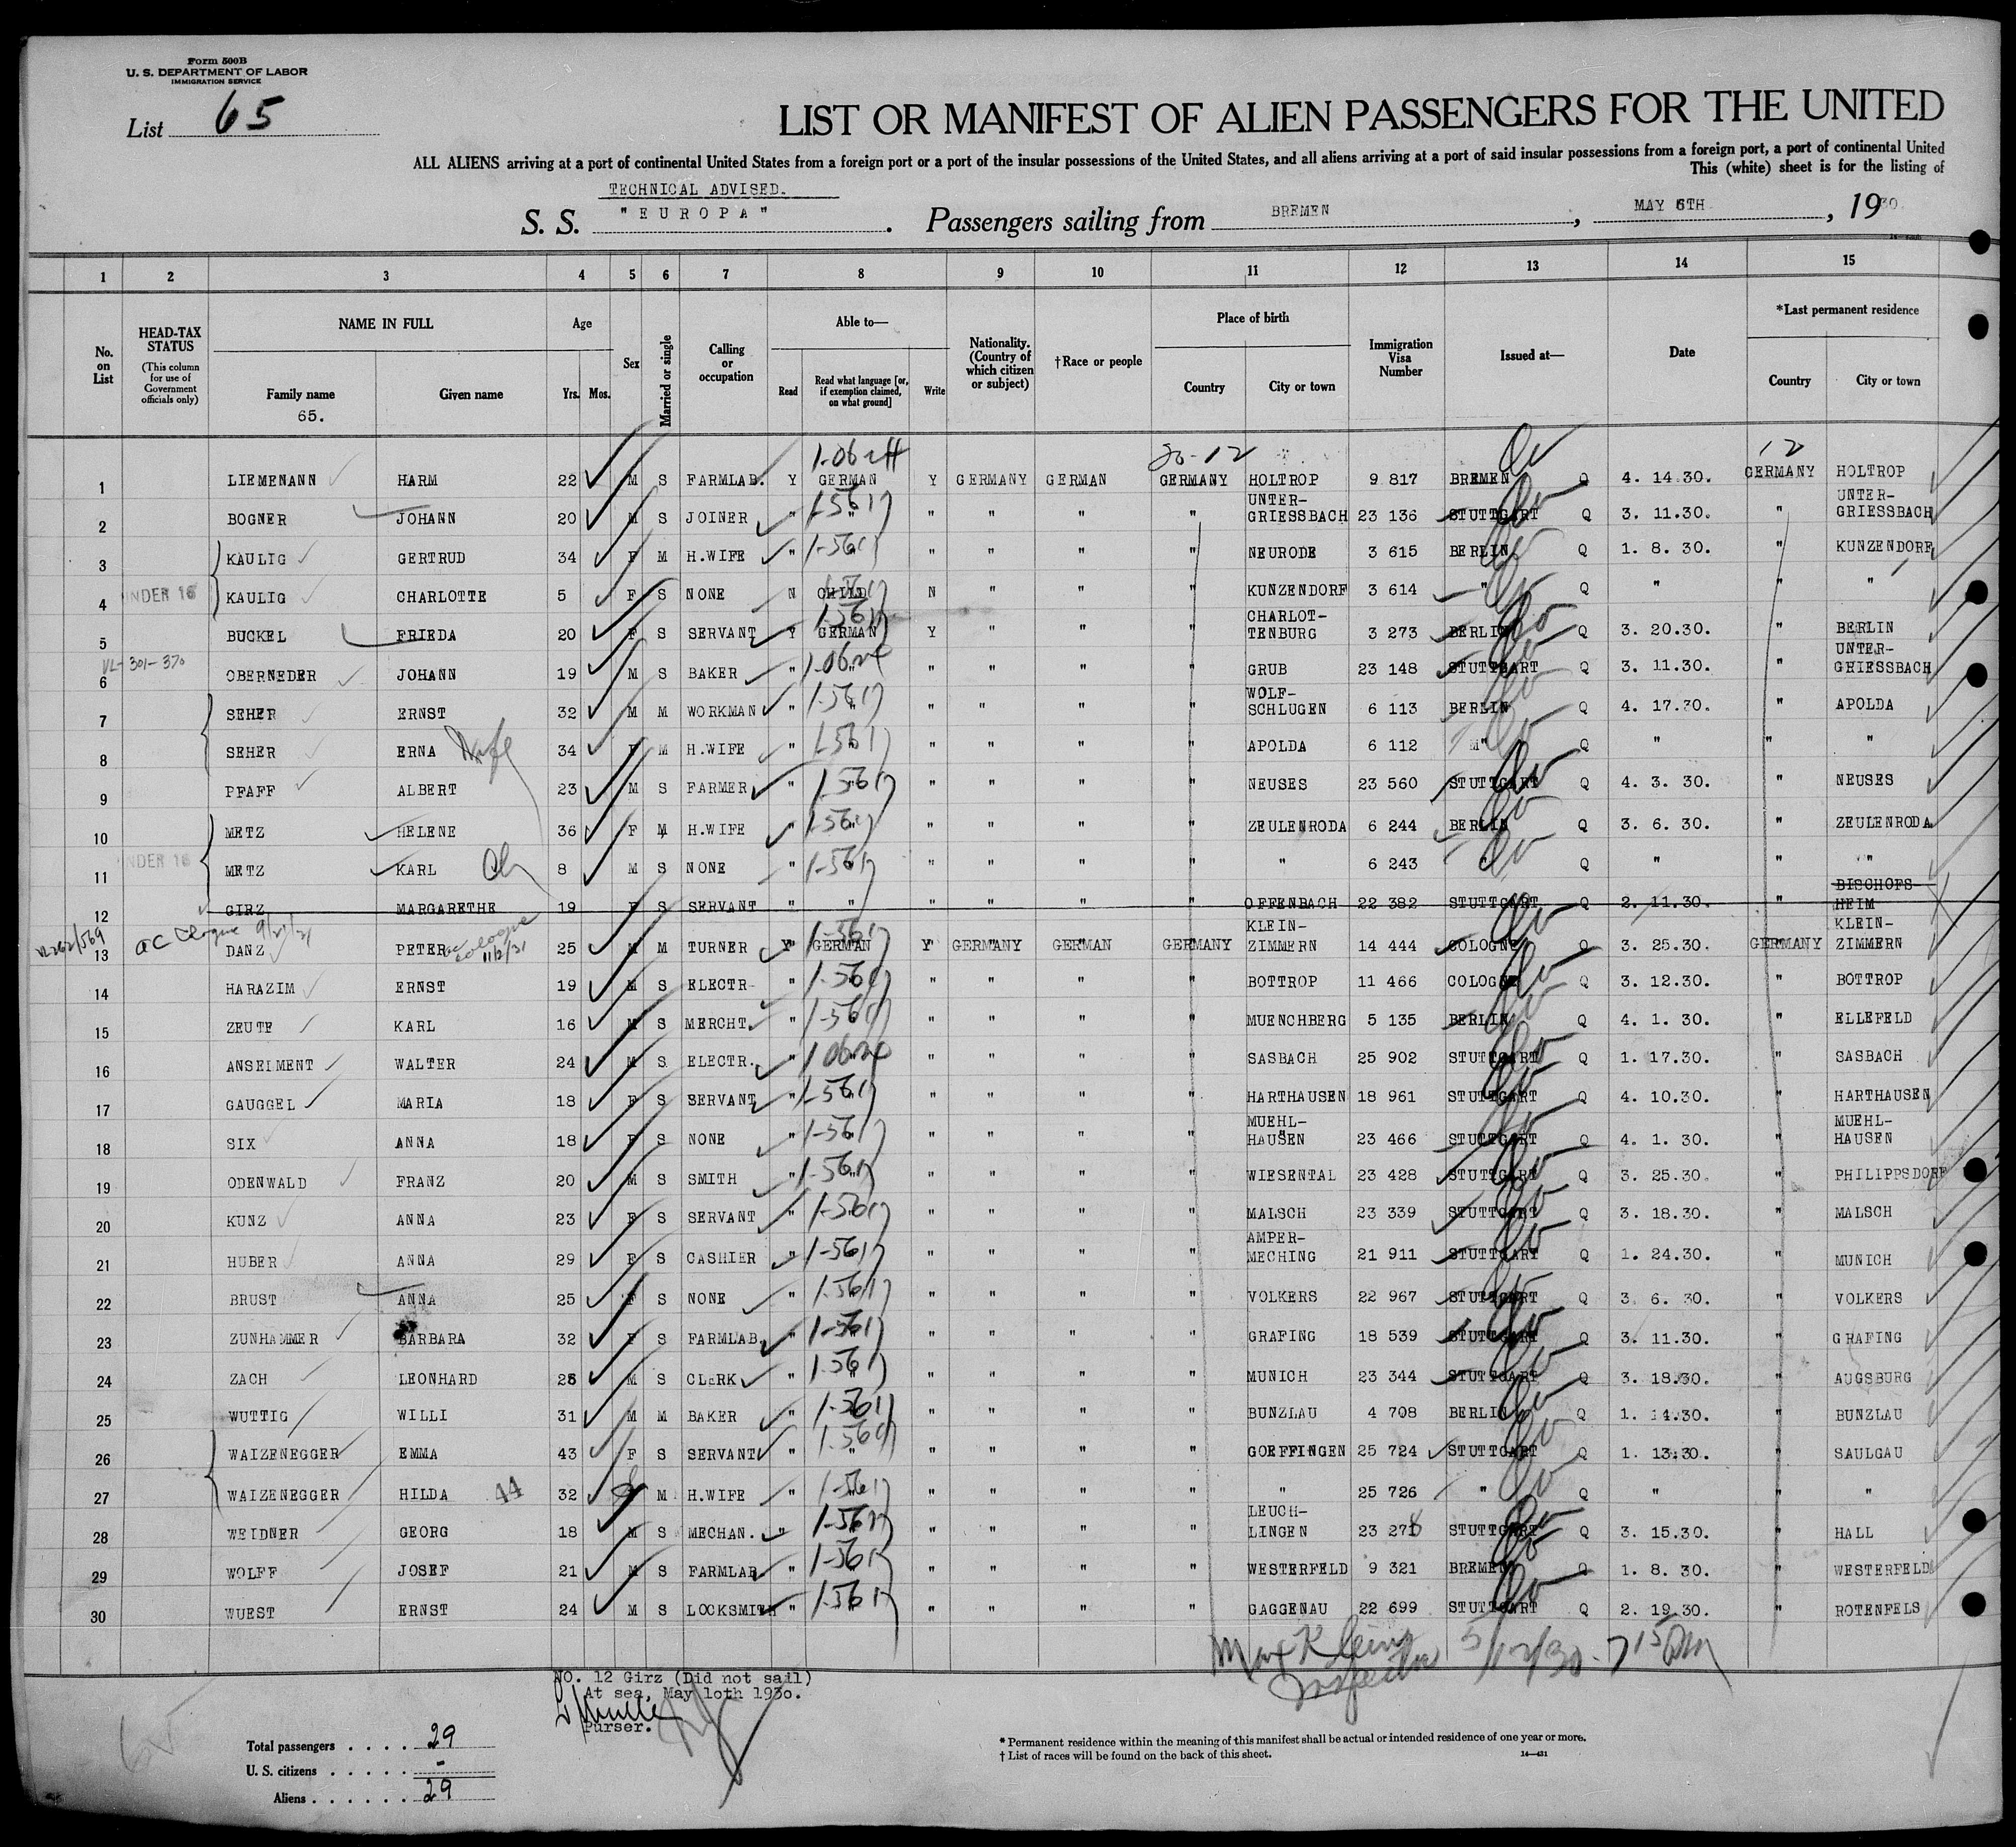 Form 500B
U. S. DEPARTMENT OF LABOR
IMMIGRATION SERVICE
List 65
LIST OR MANIFEST OF ALIEN PASSENGERS FOR THE UNITED
ALL ALIENS arriving at a port of continental United States from a foreign port or a port of the insular possessions of the United States, and all aliens arriving at a port of said insular possessions from a foreign port, a port of continental United
This (white) sheet is for the listing of
TECHNICAL ADVISED.
S. S. "EUROPA". Passengers sailing from BREMEN, MAY 6TH, 1930.
1 2 3 4 5 6 7 8 9 10 11 12 13 14 15
No. on List
HEAD-TAX STATUS (This column for use of Government officials only)
NAME IN FULL
Family name Given name
65.
Age
Yrs. Mos.
Sex
Married or single
Calling or occupation
Able to—
Read
Read what language [or, if exemption claimed, on what ground]
Write
Nationality. (Country of which citizen or subject)
†Race or people
Place of birth
Country City or town
Immigration Visa Number
Issued at—
Date
*Last permanent residence
Country City or town
20-12 12
1 LIEMENANN HARM 22 M S FARMLAB. Y GERMAN Y GERMANY GERMAN GERMANY HOLTROP 9 817 BREMEN Q 4. 14.30. GERMANY HOLTROP
2 BOGNER JOHANN 20 M S JOINER " " " " " " UNTER-GRIESSBACH 23 136 STUTTGART Q 3. 11.30. " UNTER-GRIESSBACH
3 KAULIG GERTRUD 34 F M H.WIFE " " " " " " NEURODE 3 615 BERLIN Q 1. 8. 30. " KUNZENDORF
4 UNDER 16 KAULIG CHARLOTTE 5 F S NONE N CHILD N " " " KUNZENDORF 3 614 " Q " " "
5 BUCKEL FRIEDA 20 F S SERVANT Y GERMAN Y " " " CHARLOT-TENBURG 3 273 BERLIN Q 3. 20.30. " BERLIN
VL-301-370
6 OBERNEDER JOHANN 19 M S BAKER " " " " " " GRUB 23 148 STUTTGART Q 3. 11.30. " UNTER-GRIESSBACH
7 SEHER ERNST 32 M M WORKMAN " " " " " " WOLF-SCHLUGEN 6 113 BERLIN Q 4. 17.30. " APOLDA
8 SEHER ERNA Wife 34 F M H.WIFE " " " " " " APOLDA 6 112 " Q " " "
9 PFAFF ALBERT 23 M S FARMER " " " " " " NEUSES 23 560 STUTTGART Q 4. 3. 30. " NEUSES
10 METZ HELENE 36 F M H.WIFE " " " " " " ZEULENRODA 6 244 BERLIN Q 3. 6. 30. " ZEULENRODA
11 UNDER 16 METZ KARL Ch 8 M S NONE " " " " " " " 6 243 " Q " " "
12 GIRZ MARGARETHE 19 F S SERVANT " " " OFFENBACH 22 382 STUTTGART Q 2. 11.30. " BISCHOFS-HEIM
13 DANZ PETER 25 M M TURNER Y GERMAN Y GERMANY GERMAN GERMANY KLEIN-ZIMMERN 14 444 COLOGNE Q 3. 25.30. GERMANY KLEIN-ZIMMERN
14 HARAZIM ERNST 19 M S ELECTR " " " " " " BOTTROP 11 466 COLOGNE Q 3. 12.30. " BOTTROP
15 ZEUTE KARL 16 M S MERCHT. " " " " " " MUENCHBERG 5 135 BERLIN Q 4. 1. 30. " ELLEFELD
16 ANSELMENT WALTER 24 M S ELECTR. " " " " " " SASBACH 25 902 STUTTGART Q 1. 17.30. " SASBACH
17 GAUGGEL MARIA 18 F S SERVANT " " " " " " HARTHAUSEN 18 961 STUTTGART Q 4. 10.30. " HARTHAUSEN
18 SIX ANNA 18 F S NONE " " " " " " MUEHL-HAUSEN 23 466 STUTTGART Q 4. 1. 30. " MUEHL-HAUSEN
19 ODENWALD FRANZ 20 M S SMITH " " " " " " WIESENTAL 23 428 STUTTGART Q 3. 25.30. " PHILIPPSDORF
20 KUNZ ANNA 23 F S SERVANT " " " " " " MALSCH 23 339 STUTTGART Q 3. 18.30. " MALSCH
21 HUBER ANNA 29 F S CASHIER " " " " " " AMPER-MECHING 21 911 STUTTGART Q 1. 24.30. " MUNICH
22 BRUST ANNA 25 F S NONE " " " " " " VOLKERS 22 967 STUTTGART Q 3 6. 30. " VOLKERS
23 ZUNHAMMER BARBARA 32 F S FARMLAB. " " " " " " GRAFING 18 539 STUTTGART Q 3. 11.30. " GRAFING
24 ZACH LEONHARD M S CLERK " " " " " " MUNICH 23 344 STUTTGART Q 3. 18.30. " AUGSBURG
25 WUTTIG WILLI 31 M M BAKER " " " " " " BUNZLAU 4 708 BERLIN Q 1. 14.30. " BUNZLAU
26 WAIZENEGGER EMMA 43 F S SERVANT " " " " " " GOEFFINGEN 25 724 STUTTGART Q 1. 13.30. " SAULGAU
27 WAIZENEGGER HILDA 44 32 M H.WIFE " " " " " " " 25 726 " Q " " "
28 WEIDNER GEORG 18 M S MECHAN. " " " " " " LEUCH-LINGEN 23 278 STUTTGART Q 3. 15.30. " HALL
29 WOLFF JOSEF 21 M S FARMLAB. " " " " " " WESTERFELD 9 321 BREMEN Q 1. 8. 30. " WESTERFELD
30 WUEST ERNST 24 M S LOCKSMITH " " " " " " GAGGENAU 22 699 STUTTGART Q 2. 19.30. " ROTENFELS
Max Klein 5/12/30. 7 15 PM
Inspector
NO. 12 Girz (Did not sail)
At sea, May 10th 1930.
Purser.
Total passengers . . . . 29
U. S. citizens . . . . . -
Aliens . . . . . . 29
* Permanent residence within the meaning of this manifest shall be actual or intended residence of one year or more.
† List of races will be found on the back of this sheet.
14—431